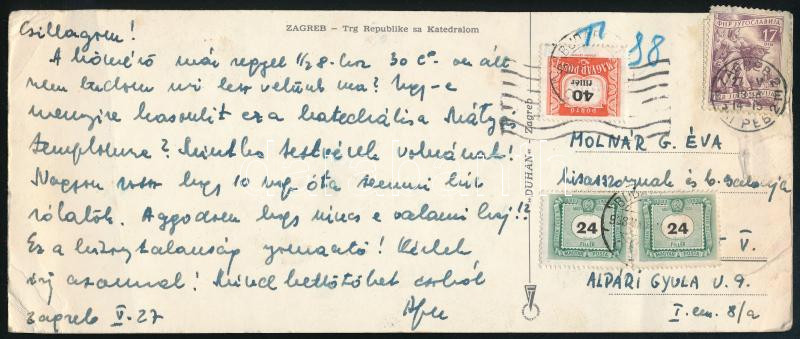 ZAGREB – Trg Republike sa Katedralom
Csillagom!
A hőmérő mái reggel 1/2 8-kor 30 C°-on állt
nem tudom mi lesz velünk ma? Ugy-e
mennyire hasonlít ez a katedrális a Mátyás
templomra? Mintha testvérek volnának!
Nagyon rossz hogy 10 nap óta semmi hír
rólatok. Aggódom hogy nincs e valami baj!!?
Ez a bizonytalanság gymaztó! Kérlek
írj azonnal! Mind kettőtöket csókol
Apu
Zagreb V.27
DUHAN – Zagreb
T
98
MAGYAR POSTA
40
fillér
PORTO
ФНР ЈУГОСЛАВИЈА
17
ZAGREB 2
MOLNÁR G. ÉVA
kisasszonynak és b. családja
24
FILLÉR
MAGYAR POSTA
24
FILLÉR
MAGYAR POSTA
V.
ALPÁRI GYULA U. 9.
I. em. 8/a